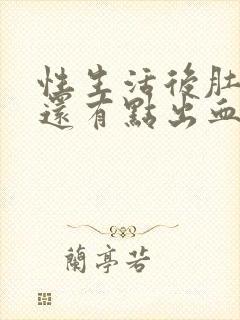 性生活後肚
還有點出血
蘭亭若